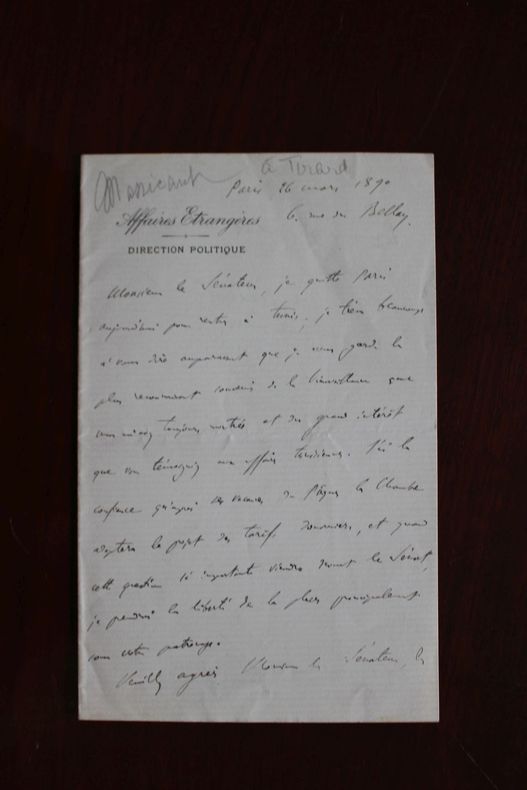 Massicault
à Tirard
Paris 26 mars 1890
Affaires Etrangères
6. rue du Bellay.
DIRECTION POLITIQUE
Monsieur le Sénateur, je quitte Paris
aujourd'hui pour rentrer à Tunis; je tiens beaucoup
à vous dire auparavant que je vous garde le
plus reconnaissant souvenir de la bienveillance que
vous m'avez toujours montrée et du grand intérêt
que vous témoignez aux affaires tunisiennes. J'ai la
confiance qu'après les vacances de Pâques la Chambre
adoptera le projet des tarifs douaniers, et quand
cette question si importante viendra devant le Sénat,
je prendrai la liberté de la placer principalement
sous votre patronage.
Veuillez agréer Monsieur le Sénateur, les